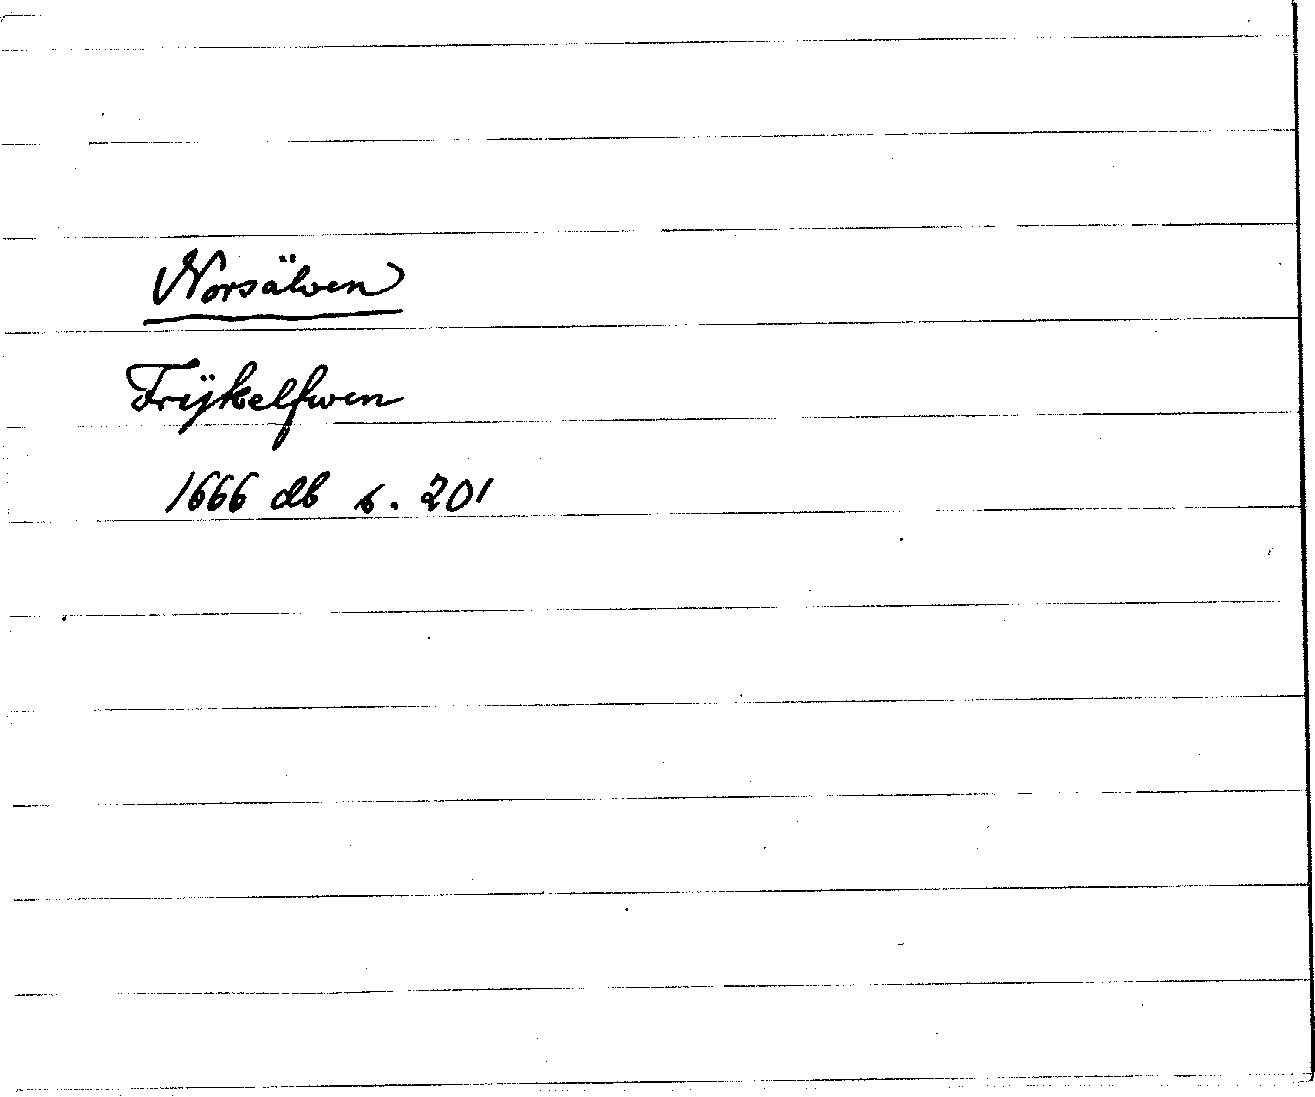 Norsälven
Frÿkelfwen
1666 db s. 201